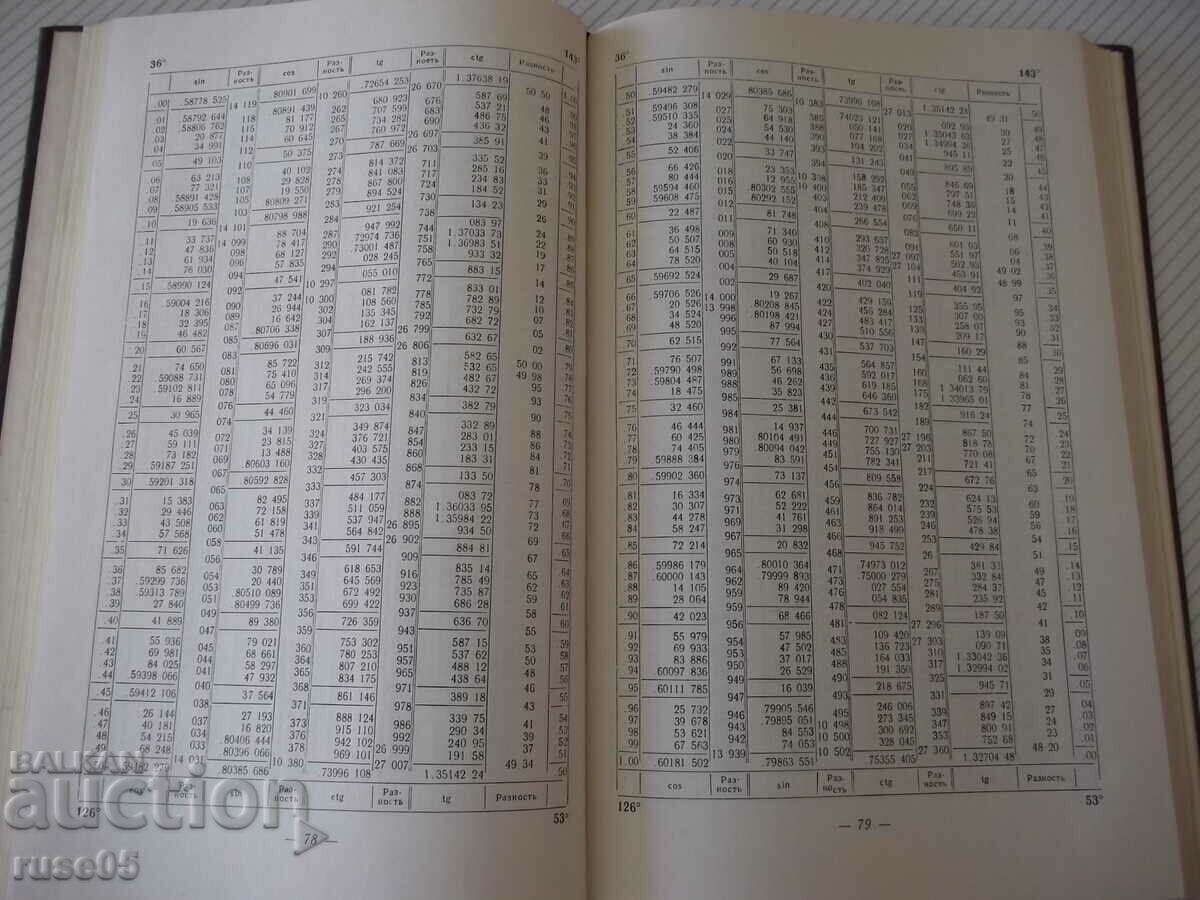 36° 143°
sin Раз-ность cos Раз-ность tg Раз-ность ctg Разность
.00 .58778 525 14 119 .80901 699 10 260 .72654 253 26 670 1.37638 19 50 50 1.00
.01 .58792 644 118 .80891 439 262 680 923 676 587 69 48
.02 .58806 762 115 81 177 265 707 599 683 537 21 46
.03 20 877 114 70 912 267 734 282 690 486 75 43
.04 34 991 112 60 645 270 760 972 26 697 436 32 41
.05 49 103 110 50 375 273 787 669 26 703 385 91 39
.06 63 213 108 40 102 274 814 372 711 335 52 36
.07 77 321 107 29 828 278 841 083 717 285 16 33
.08 .58891 428 105 19 550 279 867 800 724 234 83 31
.09 .58905 533 103 .80809 271 283 894 524 730 184 52 29
.10 19 636 101 .80798 988 284 921 254 738 134 23 26 90
.11 33 737 14 099 88 704 287 947 992 744 083 97 24
.12 47 836 098 78 417 290 .72974 736 751 1.37033 73 22
.13 61 934 096 68 127 292 .73001 487 758 1.36983 51 19
.14 76 030 094 57 835 294 028 245 765 933 32 17
.15 .58990 124 092 47 541 297 055 010 772 883 15 14
.16 .59004 216 090 37 244 10 300 081 782 778 833 01 12 84
.17 18 306 089 26 944 302 108 560 785 782 89 10 83
.18 32 395 087 16 642 304 135 345 792 732 79 07 82
.19 46 482 085 .80706 338 307 162 137 26 799 682 72 05 81
.20 60 567 083 .80696 031 309 188 936 26 806 632 67 02 80
.21 74 650 081 85 722 312 215 742 813 582 65 50 00 79
.22 .59088 731 080 75 410 314 242 555 819 532 65 49 98 78
.23 .59102 811 078 65 096 317 269 374 826 482 67 95 77
.24 16 889 076 54 779 319 296 200 834 432 72 93 76
.25 30 965 074 44 460 321 323 034 840 382 79 90 75
.26 45 039 072 34 139 324 349 874 847 332 89 88 74
.27 59 111 071 23 815 327 376 721 854 283 01 86 73
.28 73 182 069 13 488 328 403 575 860 233 15 84 72
.29 .59187 251 067 .80603 160 332 430 435 868 183 31 81 71
.30 .59201 318 065 .80592 828 333 457 303 874 133 50 78 70
.31 15 383 063 82 495 337 484 177 882 083 72 77 69
.32 29 446 062 72 158 339 511 059 888 1.36033 95 73 68
.33 43 508 060 61 819 341 537 947 26 895 1.35984 22 72 67
.34 57 568 058 51 478 343 564 842 26 902 934 50 69 66
.35 71 626 056 41 135 346 591 744 909 884 81 67 65
.36 85 682 054 30 789 349 618 653 916 835 14 65 64
.37 .59299 736 053 20 440 351 645 569 923 785 49 62 63
.38 .59313 789 051 .80510 089 353 672 492 930 735 87 59 62
.39 27 840 049 .80499 736 356 699 422 937 686 28 58 61
.40 41 889 047 89 380 359 726 359 943 636 70 55 60
.41 55 936 045 79 021 360 753 302 951 587 15 53 59
.42 69 981 044 68 661 364 780 253 957 537 62 50 58
.43 84 025 041 58 297 365 807 210 965 488 12 48 57
.44 .59398 066 040 47 932 368 834 175 971 438 64 46 56
.45 .59412 106 038 37 564 371 861 146 978 389 18 43 55
.46 26 144 037 27 193 373 888 124 986 339 75 41 54
.47 40 181 034 16 820 376 915 110 992 290 34 39 53
.48 54 215 033 .80406 444 378 942 102 26 999 240 95 37 52
.49 68 248 14 031 .80396 066 10 380 969 101 27 007 191 58 49 34 51
.50 .59482 279 .80385 686 .73996 108 1.35142 24 50
cos Раз-ность sin Разность ctg Раз-ность tg Разность
126° 53°
— 78 —
36° 143°
sin Раз-ность cos Раз-ность tg Раз-ность ctg Разность
.50 .59482 279 14 029 .80385 686 10 383 .73996 108 27 013 1.35142 24 49 31 .50
51 .59496 308 027 75 303 385 .74023 121 020 092 93 30 49
52 .59510 335 025 64 918 388 050 141 027 1.35043 63 27 48
53 24 360 024 54 530 390 077 168 034 1.34994 36 25 47
54 38 384 022 44 140 393 104 202 041 945 11 22 46
55 52 406 020 33 747 394 131 243 049 20 45
56 66 426 018 23 353 10 398 158 292 055 846 69 18 44
57 80 444 016 12 955 10 400 185 347 062 797 51 15 43
58 .59594 460 015 .80302 555 212 409 069 748 36 14 42
59 .59608 475 012 .80292 152 404 239 478 076 699 22 11 41
60 22 487 011 81 748 408 266 554 083 650 11 08 40
61 36 498 009 71 340 410 293 637 091 601 03 06 39
62 50 507 008 60 930 412 320 728 27 097 551 97 04 38
63 64 515 005 50 518 414 347 825 27 104 502 93 49 02 37
64 78 520 004 40 104 417 374 929 111 453 91 48 99 36
65 .59692 524 002 29 687 420 402 040 119 404 92 97 35
66 .59706 526 14 000 19 267 422 429 159 125 355 95 95 34
67 20 526 13 998 .80208 845 424 456 284 133 307 00 93 33
68 34 524 996 .80198 421 427 483 417 139 258 07 90 32
69 48 520 995 87 994 430 510 556 147 209 17 88 31
70 62 515 992 77 564 431 537 703 154 160 29 85 30
71 76 507 991 67 133 435 564 857 160 111 44 84 29
72 .59790 498 989 56 698 436 592 017 168 062 60 81 28
73 .59804 487 988 46 262 439 619 185 175 1.34013 79 78 27
74 18 475 985 35 823 442 646 360 182 1.33965 01 77 26
75 32 460 984 25 381 444 673 542 189 916 24 74 25
76 46 444 981 14 937 446 700 731 27 196 867 50 72 24
77 60 425 980 .80104 491 449 727 927 27 203 818 78 70 23
78 74 405 979 .80094 042 451 755 130 211 770 08 67 22
79 .59888 384 976 83 591 454 782 341 217 721 41 65 21
80 .59902 360 974 73 137 456 809 558 224 672 76 63 .20
.81 16 334 973 62 681 459 836 782 232 624 13 60 .19
.82 30 307 971 52 222 461 864 014 239 575 53 59 .18
.83 44 278 969 41 761 463 891 253 246 526 94 56 .17
.84 58 247 967 31 298 466 918 499 253 478 38 54 .16
.85 72 214 965 20 832 468 945 752 26 429 84 51 .15
.86 .59986 179 964 .80010 364 471 .74973 012 267 381 33 .14
.87 .60000 143 962 .79999 893 473 .75000 279 275 332 84 47 .13
88 14 105 959 89 420 476 027 554 281 284 37 45 .12
89 28 064 959 78 944 478 054 835 289 235 92 42 .11
.90 42 023 956 68 466 481 082 124 27 296 187 50 41 .10
91 55 979 954 57 985 483 109 420 27 303 139 09 38 .09
92 69 933 953 47 502 485 136 723 310 090 71 35 .08
93 83 886 950 37 017 488 164 033 318 1.33042 36 34 .07
94 .60097 836 949 26 529 490 191 351 324 1.32994 02 31 .06
95 .60111 785 947 16 039 493 218 675 331 945 71 29 .05
96 25 732 946 .79905 546 495 246 006 339 897 42 27 .04
97 39 678 943 .79895 051 10 498 273 345 347 849 15 24 .03
98 53 621 942 84 553 10 500 300 692 353 800 91 23 .02
99 67 563 13 939 74 053 10 502 328 045 27 360 752 68 48 20 .01
1.00 .60181 502 .79863 551 .75355 405 1.32704 48 .00
cos Раз-ность sin Раз-ность ctg Раз-ность tg Разность
126° 53°
— 79 —
BALKAN
auction
ruse05